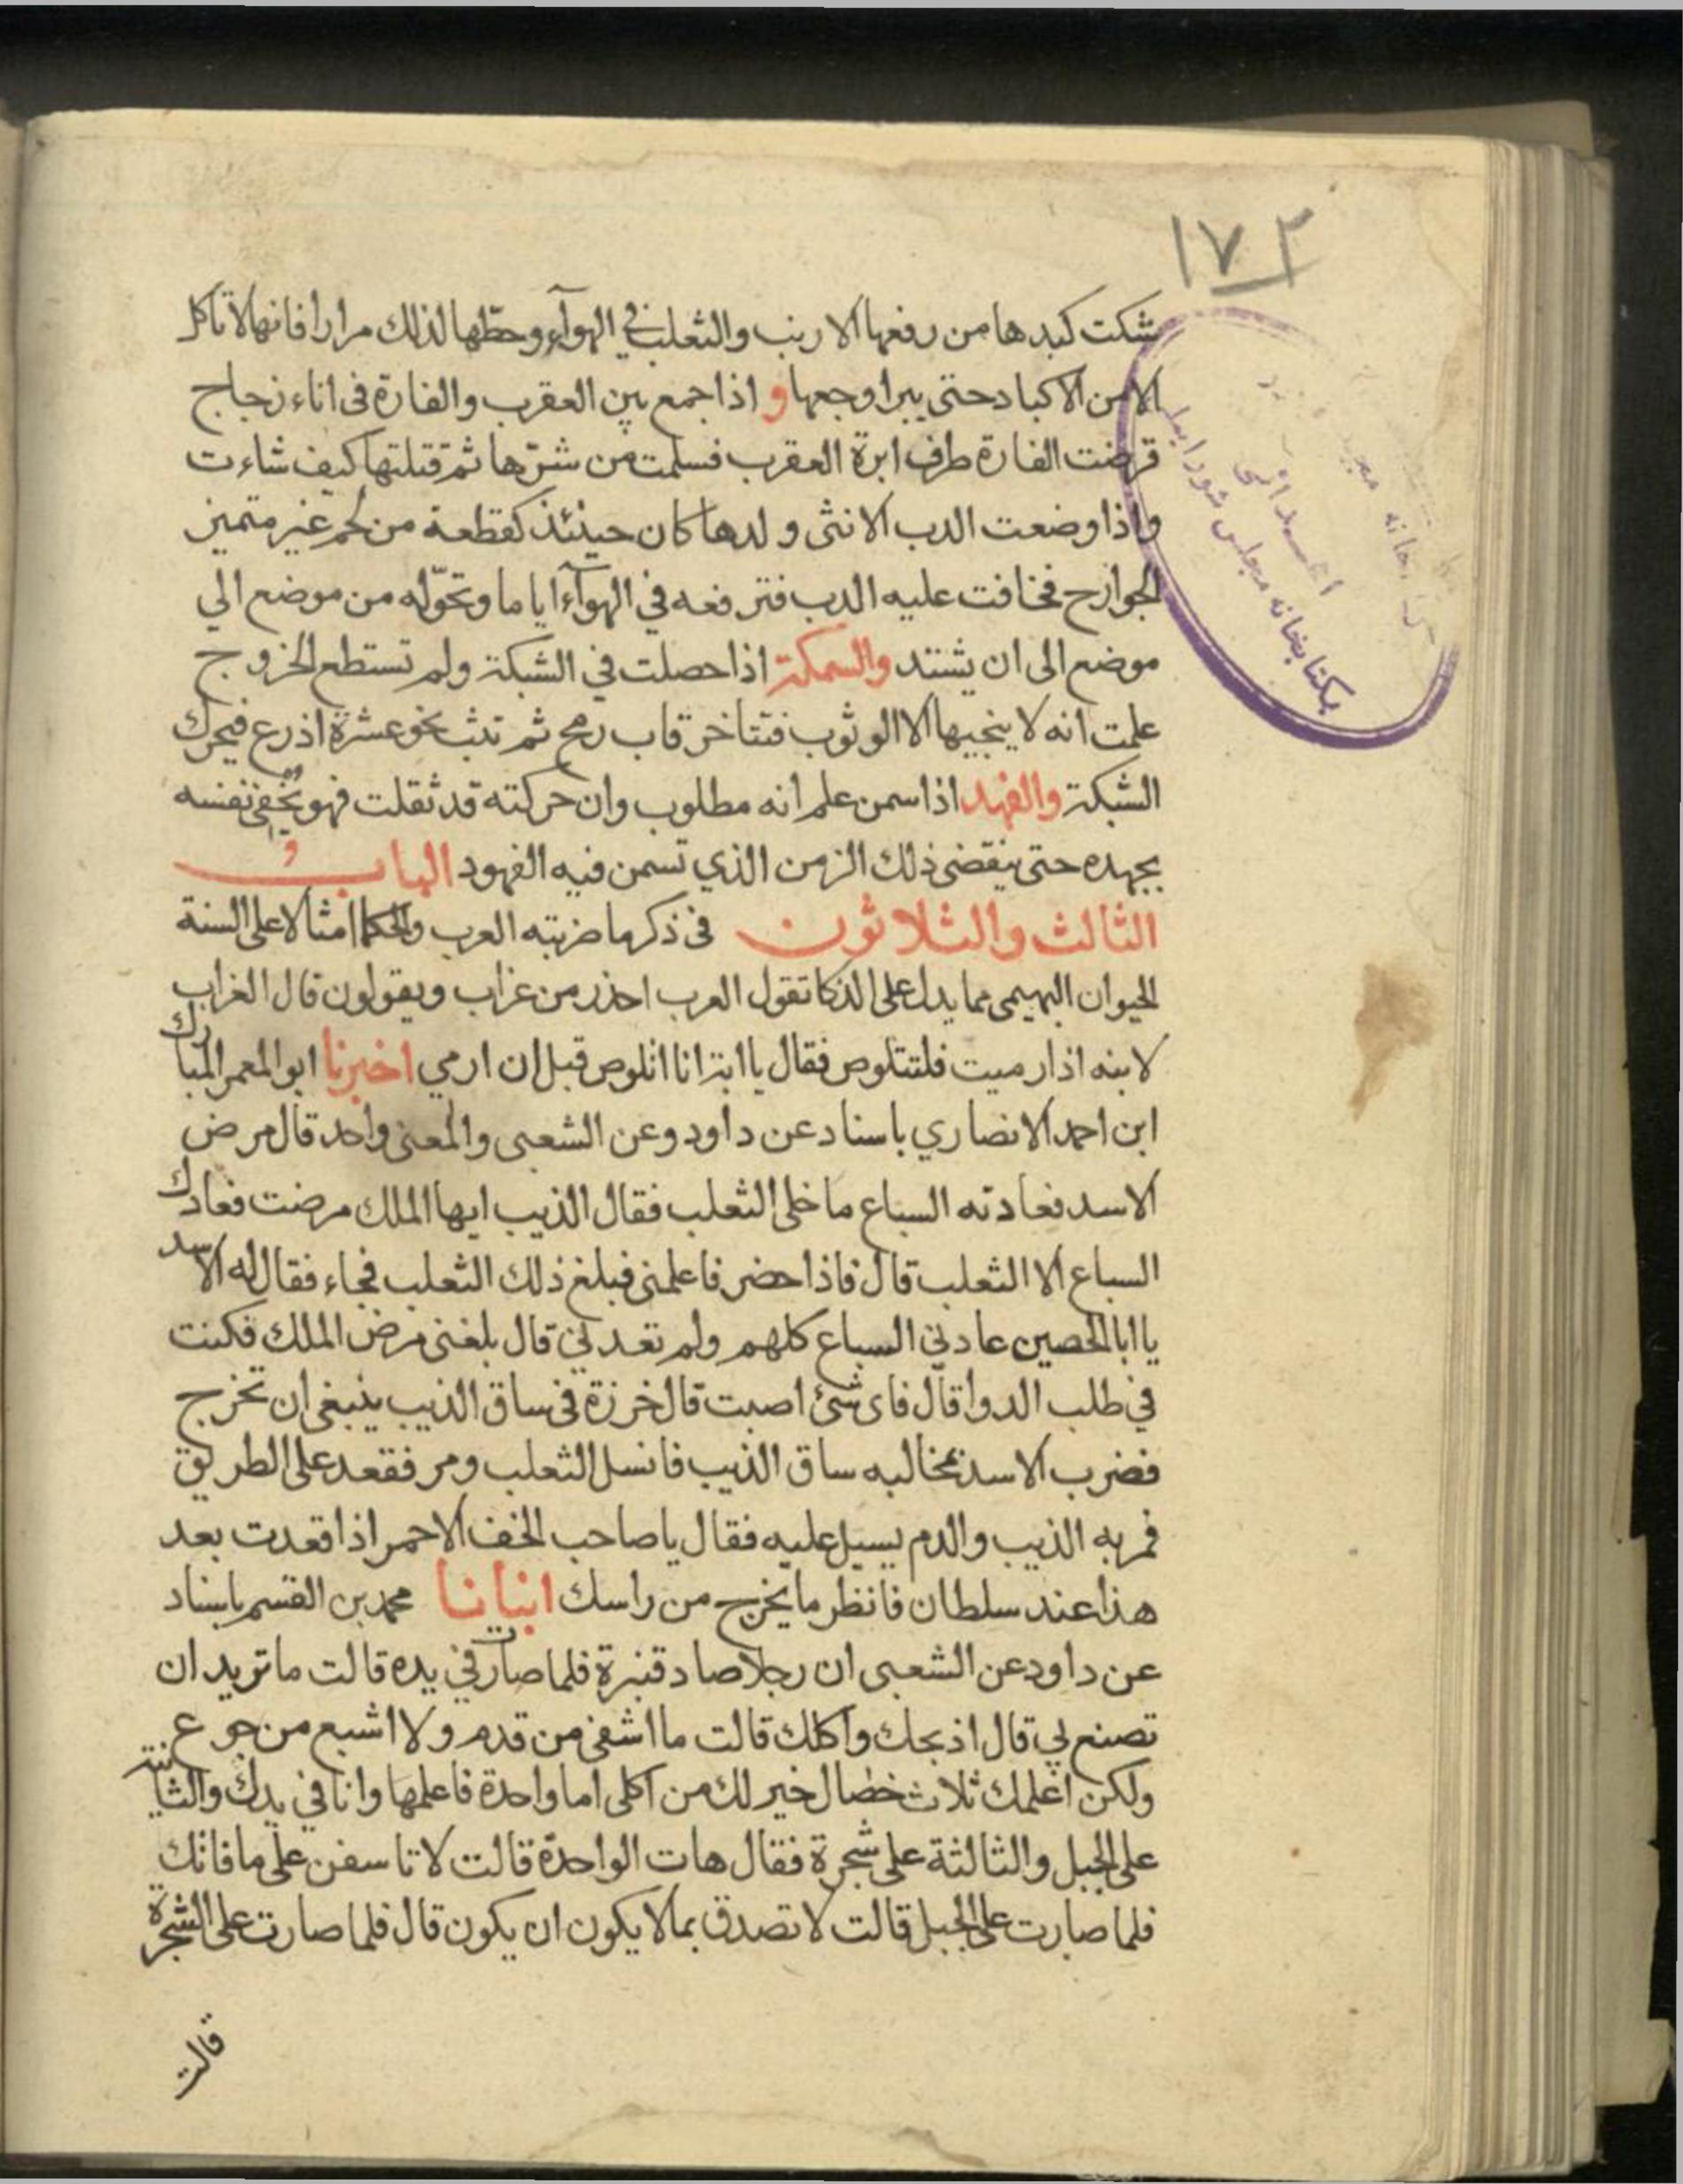 ١٧٢
شكت كبدها من رفعها الارنب والثعلب في الهوآء وحطها لذلك مرارا فانها لا تاكل
الا من الاكباد حتى يبرا وجعها و اذا جمع بين العقرب والفارة فى اناء زجاج
قرضت الفارة طرف ابرة العقرب فسلمت من شرّها ثم قتلتها كيف شاءت
واذا وضعت الدب الانثى ولدها كان حينئذ كقطعة من لحم غير متميز
الجوارح فخافت عليه الدب فترفعه في الهوآء اياما وتحوّله من موضع الي
موضع الى ان يشتد والسمكة اذا حصلت في الشبكة ولم تستطع الخروج
علمت انه لا ينجيها الا الوثوب فتتاخر قاب رمح ثم تثب نحو عشرة اذرع فيخرك
الشبكة والفهد اذا سمن علم انه مطلوب وان حركته قد ثقلت فهو يخفى نفسه
بجهده حتى ينقضى ذلك الزمن الذي تسمن فيه الفهود الباب
الثالث والثلاثون فى ذكر ما ضربته العرب والحكما امثالا على السنة
الحيوان البهيمى مما يدل على الذكا تقول العرب احذر من غراب ويقولون قال الغراب
لابنه اذا رميت فلتتلوص فقال يا ابة انا اتلوص قبل ان ارمي اخبرنا ابو المعمر المبارك
ابن احمد الانصاري باسناد عن داود وعن الشعبى والمعنى واحد قال مرض
الاسد فعادته السباع ما خلى الثعلب فقال الذيب ايها الملك مرضت فعادك
السباع الا الثعلب قال فاذا حضر فاعلمنى فبلغ ذلك الثعلب فجاء فقال له الاسد
يا ابا الحصين عادني السباع كلهم ولم تعدني قال بلغنى مرض الملك فكنت
في طلب الدوا قال فاى شئ اصبت قال خرزة فى ساق الذيب ينبغى ان تخرج
فضرب الاسد بمخالبه ساق الذيب فانسل الثعلب ومر فقعد على الطريق
فمر به الذيب والدم يسيل عليه فقال يا صاحب الخف الاحمر اذا قعدت بعد
هذا عند سلطان فانظر ما يخرج من راسك انبانا محمد بن القسم باسناد
عن داود عن الشعبى ان رجلا صاد قنبرة فلما صارت في يده قالت ما تريد ان
تصنع بي قال اذبحك واكلك قالت ما اشفى من قدم ولا اشبع من جوع
ولكن اعلمك ثلاث خصال خير لك من اكلى اما واحدة فاعلمها وانا في يدك والثانية
على الجبل والثالثة على شجرة فقال هات الواحدة قالت لا تاسفن على ما فاتك
فلما صارت على الجبل قالت لا تصدق بما لا يكون ان يكون قال فلما صارت على الشجرة
قالت
بكتابخانه مجلس شورا